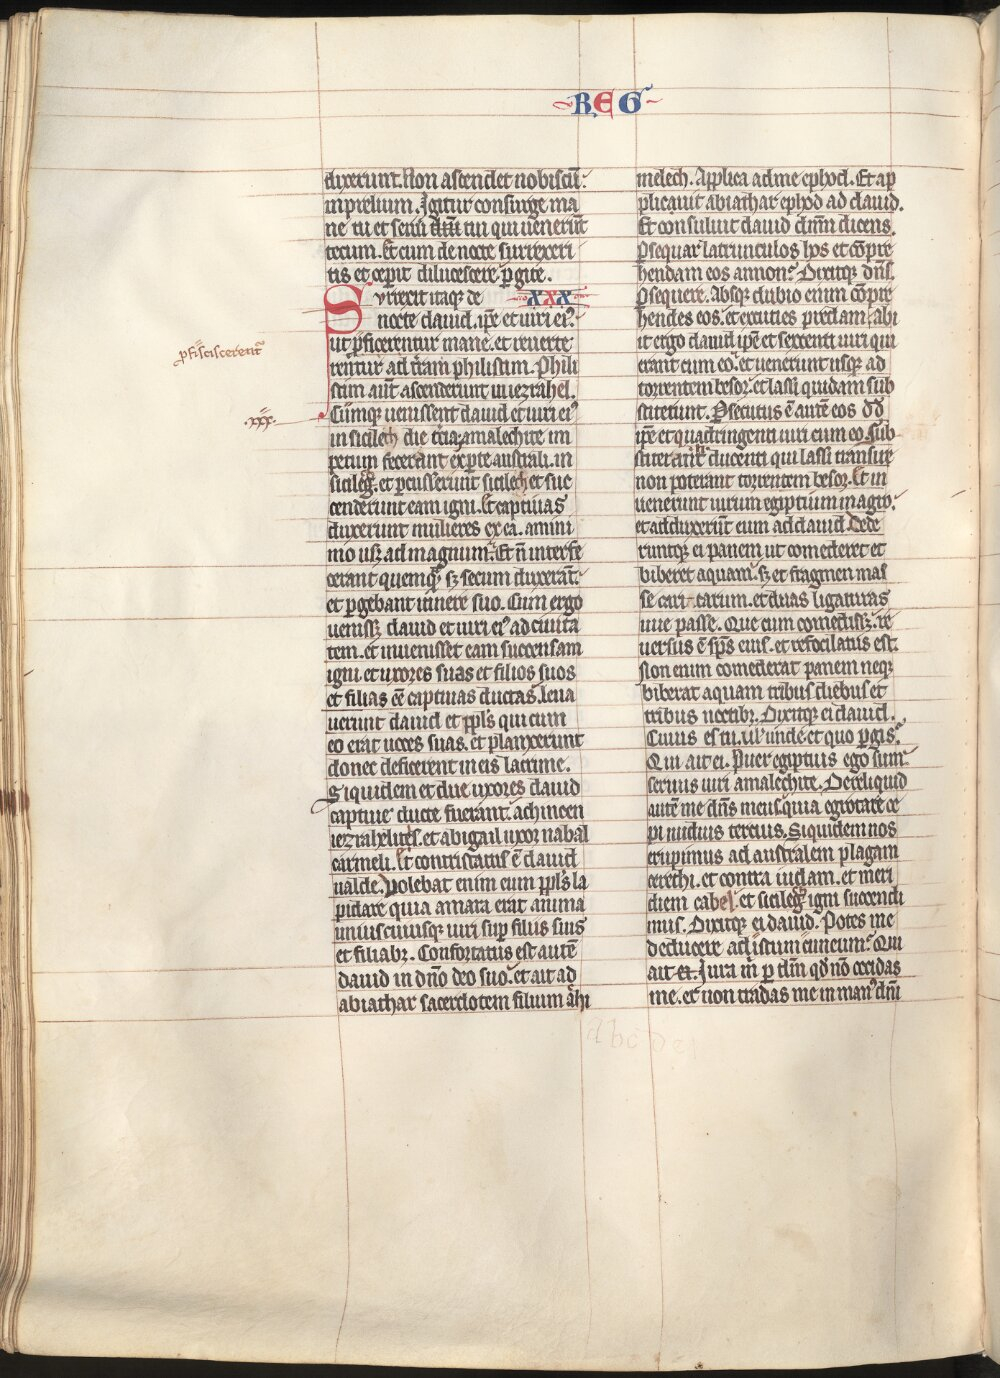 REG
duxerunt. Non ascendet nobiscū
in prelium. Igitur consurge ma
ne tu et serui dn̄i tui qui uenerūt
tecum. Et cum de nocte surrexeri
tis et ceperit dilucescere pergite.
Surrexit itaque de XXX
nocte dauid. ipse et uiri eiꝰ.
ut proficerentur mane. et reuerte
rentur ad terram philistim. Phili
stim aut̄ ascenderunt in iezrahel.
proficiscerentᷣ
.xxx.
Cumque uenissent dauid et uiri eiꝰ
in sicilech die tercia. amalechite im
petum fecerant ex parte australi. in
sicileg. et percusserunt sicilech et suc
cenderunt eam igni. Et captiuas
duxerunt mulieres ex ea. a mini
mo usq; ad magnum. Et n̄ interfe
cerant quemq̄ sꝫ secum duxerāt.
et pergebant itinere suo. Cum ergo
uenissꝫ dauid et uiri eiꝰ ad ciuita
tem. et inuenisset eam succensam
igni et uxores suas et filios suos
et filias eē captiuas ductas. leua
uerunt dauid et ppl̄s qui cum
eo erāt uoces suas. et planxerunt
donec deficerent in eis lacrime.
Siquidem et due uxores dauid
captiue ducte fuerant. achinoen
iezrahelites. et abigail uxor nabal
carmeli. Et contristatus ē dauid
ualde. Uolebat enim eum ppl̄s la
pidare quia amara erat anima
uniuscuiusq; uiri sup filiis suis
et filiabꝫ. Confortatus est autē
dauid in dn̄o deo suo. et ait ad
abiathar sacerdotem filium achi
melech. Applica ad me ephod. Et ap
plicauit abiathar ephod ad dauid.
Et consuluit dauid dn̄m dicens.
Persequar latrunculos hos et cōpre
hendam eos an non. Dixitqꝫ dn̄s.
Persequere. Absqꝫ dubio enim cōpre
hendes eos. et excuties predam. Abi
it ergo dauid ipē et sexcenti uiri qui
erant cum eo. et uenerunt usqꝫ ad
torrentem besor. et lassi quidam sub
stiterunt. Persecutus ē autē eos dd
ipē et quadringenti uiri cum eo. Sub
stiterant ducenti qui lassi transire
non poterant torrentem besor. Et in
uenerunt uirum egiptium in agro.
et adduxerūt eum ad dauid. Dede
runtqꝫ ei panem ut comederet et
biberet aquam. sꝫ et fragmen mas
se caricarum. et duas ligaturas
uue passe. Que cum comedissꝫ. re
uersus ē sp̄s eius. et refocilatus est.
Non enim comederat panem neqꝫ
biberat aquam tribus diebus et
tribus noctibꝫ. Dixitqꝫ ei dauid.
Cuius es tu. ul̄ unde et quo pergis.
Qui ait ei. Puer egiptius ego sum.
seruus uiri amalechite. Dereliquid
autē me dn̄s meus. quia egrotare ce
pi nudius tercius. Siquidem nos
erupimus ad australem plagam
cerethi. et contra iudam. et meri
diem cabel. et sicileg igni succendi
mus. Dixitqꝫ ei dauid. Potes me
deducere ad istum cuneum. Qui
ait ei. Iura m̄ per dm̄ qd̄ nō occidas
me. et non tradas me in manꝰ dn̄i
a b c d e